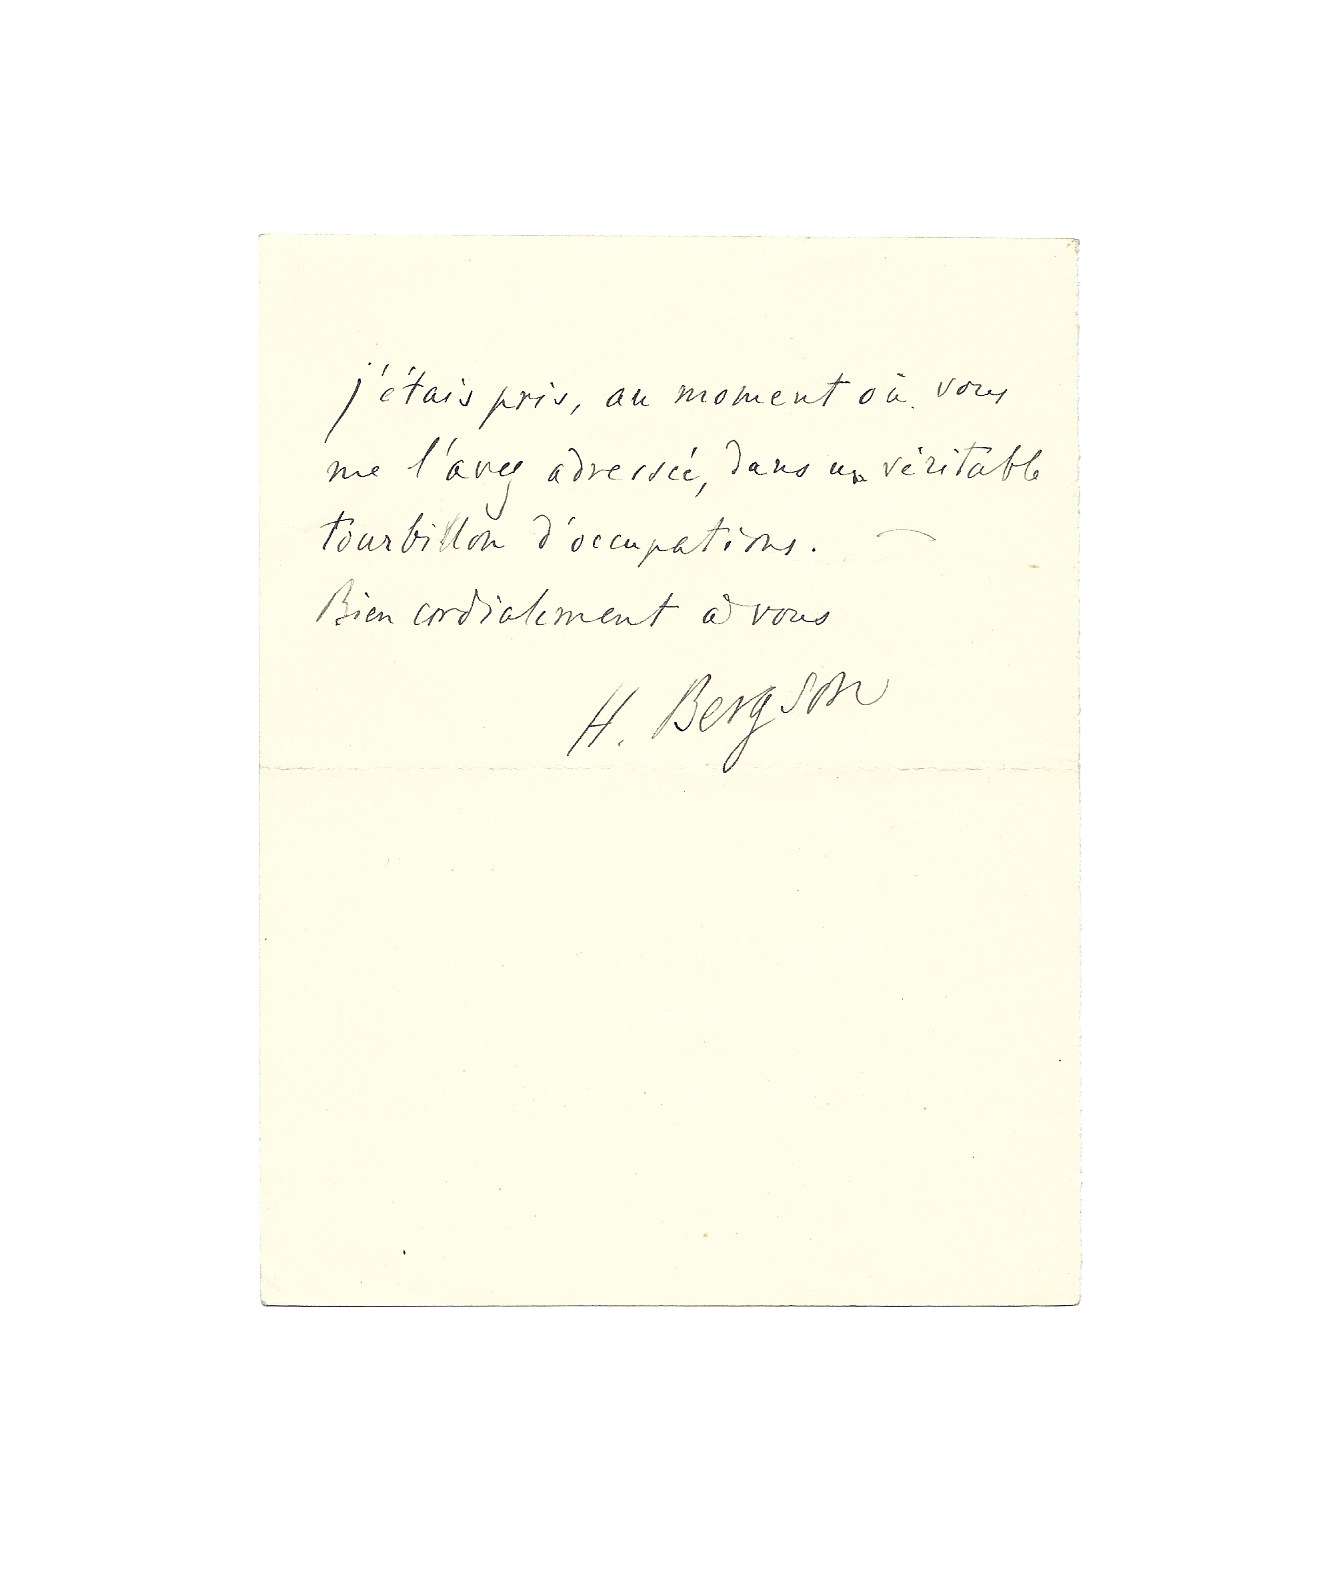 j'étais pris, au moment où vous
me l'avez adressée, dans un véritable
tourbillon d'occupations. —
Bien cordialement à vous
H. Bergson